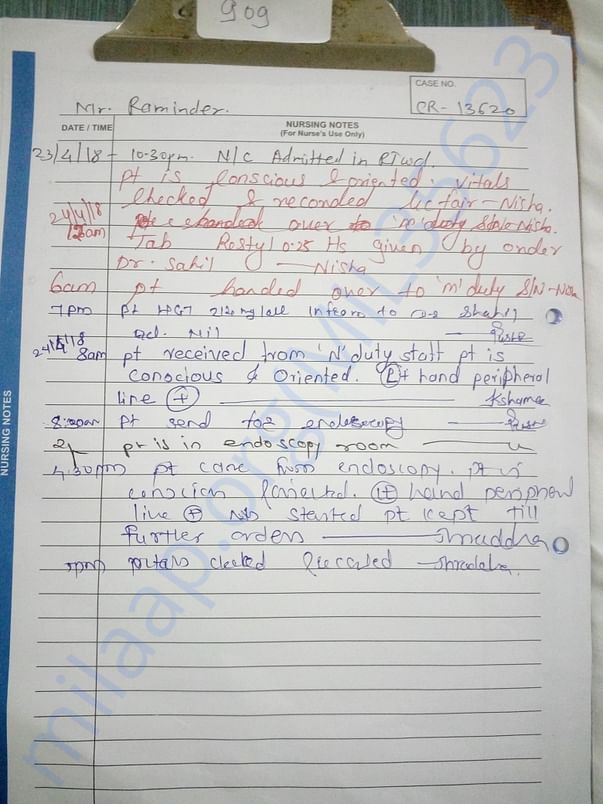 909
CASE NO.
CR-13620
Mr. Raminder.
DATE / TIME
NURSING NOTES
(For Nurse's Use Only)
23/4/18 - 10-30pm. N/C Admitted in
pt is conscious & oriented. vitals
checked & recorded fair - Nisha.
24/4/18 handed over to 'n' duty Nisha.
12am Tab Restyl 0.25 Hs given by order
Dr. Sahil — Nisha
6am pt handed over to 'm' duty S/N -
7pm pt HGT inform to
Nil
24/4/18 8am pt received from 'N' duty staff pt is
conscious & Oriented. hand peripheral
line + — Kshama
8:20am pt send for endoscopy —
pt is in endoscopy room —
4:30pm pt came from endoscopy. pt is
hand peripheral
line + started pt kept till
further orders — Shraddha
7pm vitals checked & recorded — Shraddha.
NURSING NOTES
milaap.org